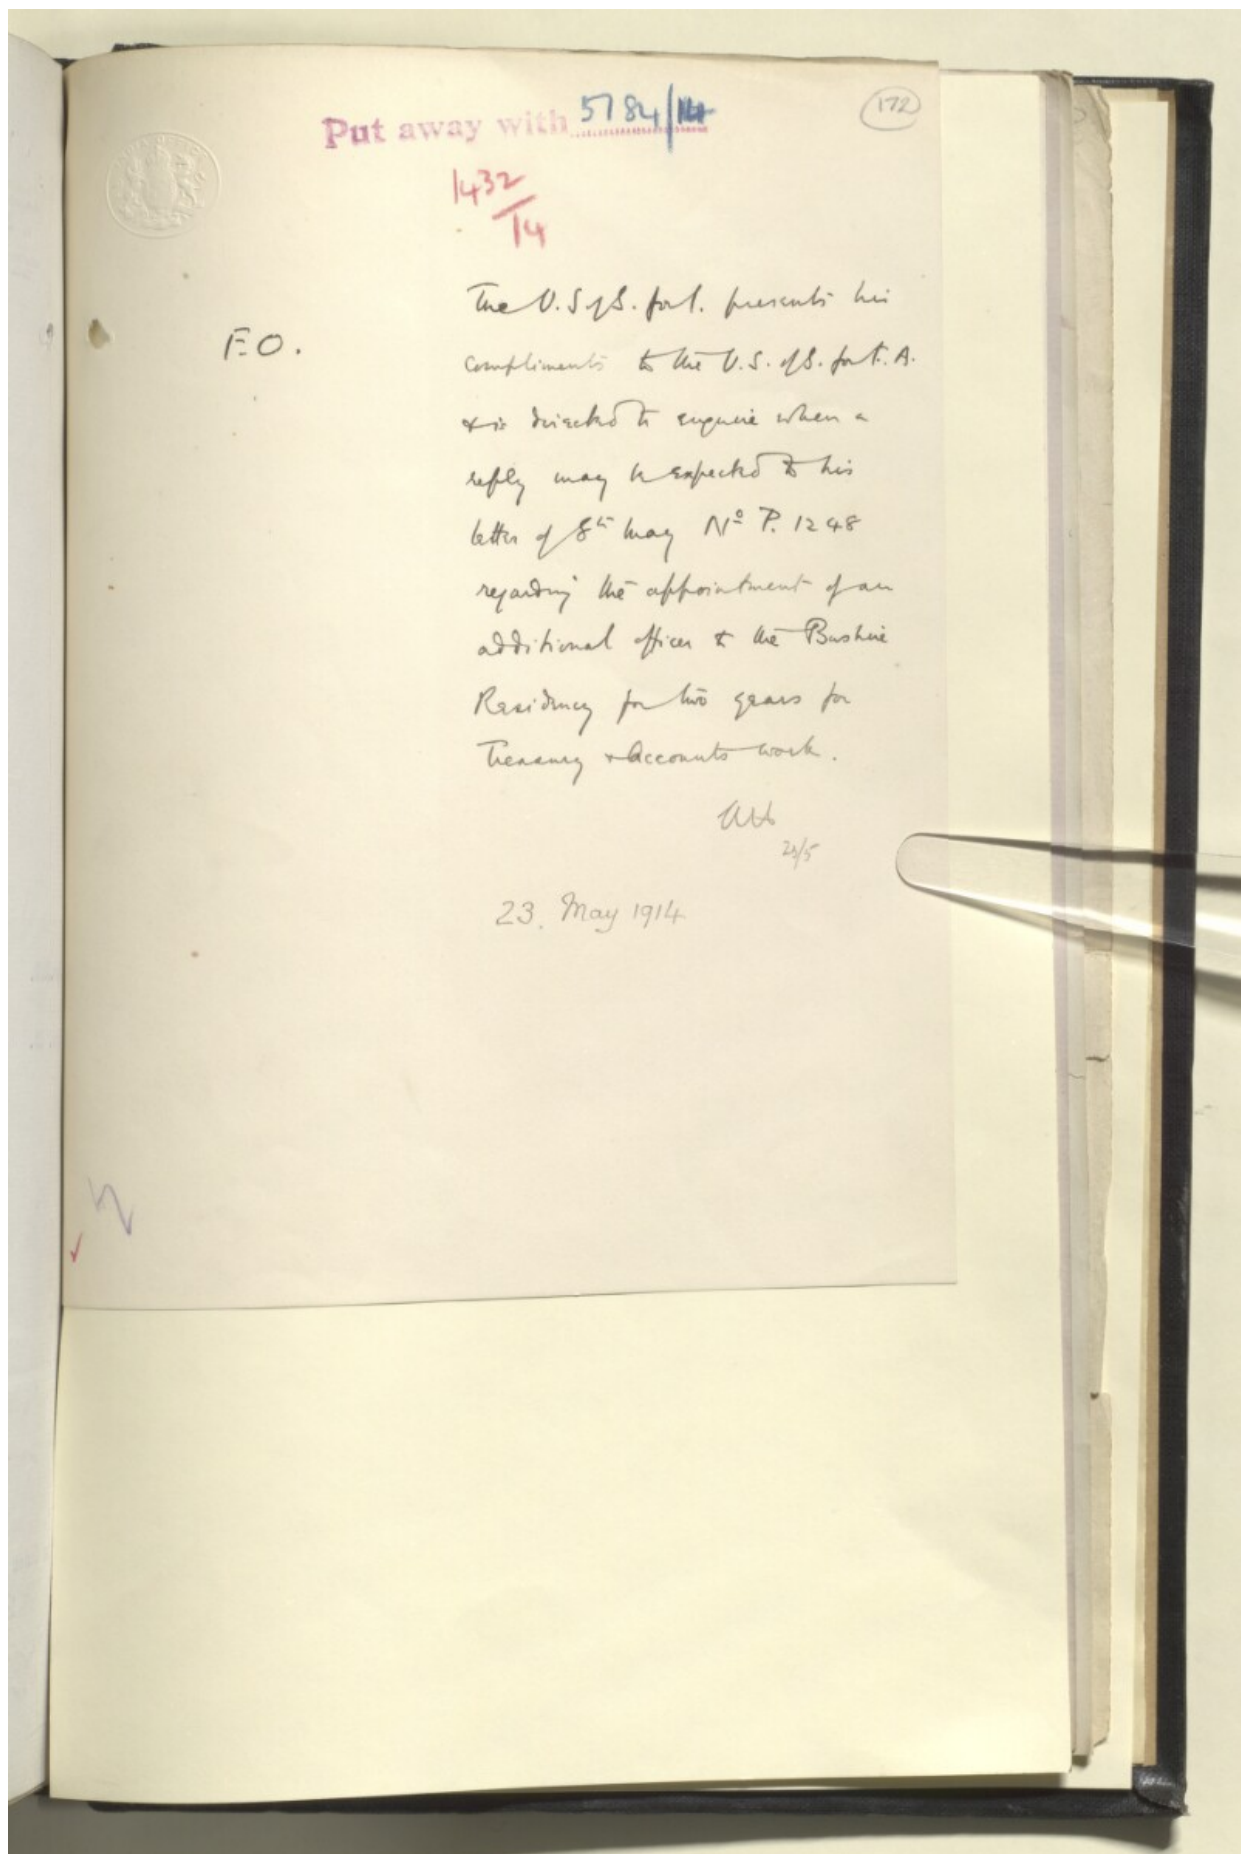 Put away with 5784/14
172
1432
14
F.O.
The U.S. of S. for I. presents his
compliments to the U.S. of S. for F.A.
& is directed to enquire when a
reply may be expected to his
letter of 8th May No P. 1248
regarding the appointment of an
additional officer to the Bushire
Residency for two years for
Treasury & Accounts work.
23. May 1914